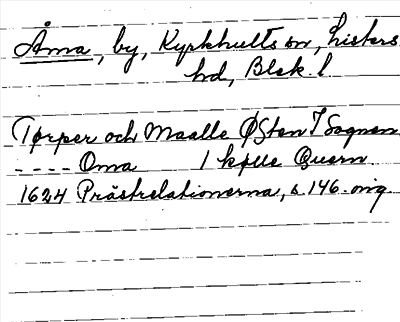 Åma, by, Kyrkhults sn, Listers
hd, Blek. l
Tørper och Maalle Østen I Sognen
---- Oma 1 kølle Quern
1624 Prästrelationerna, s. 146. orig.